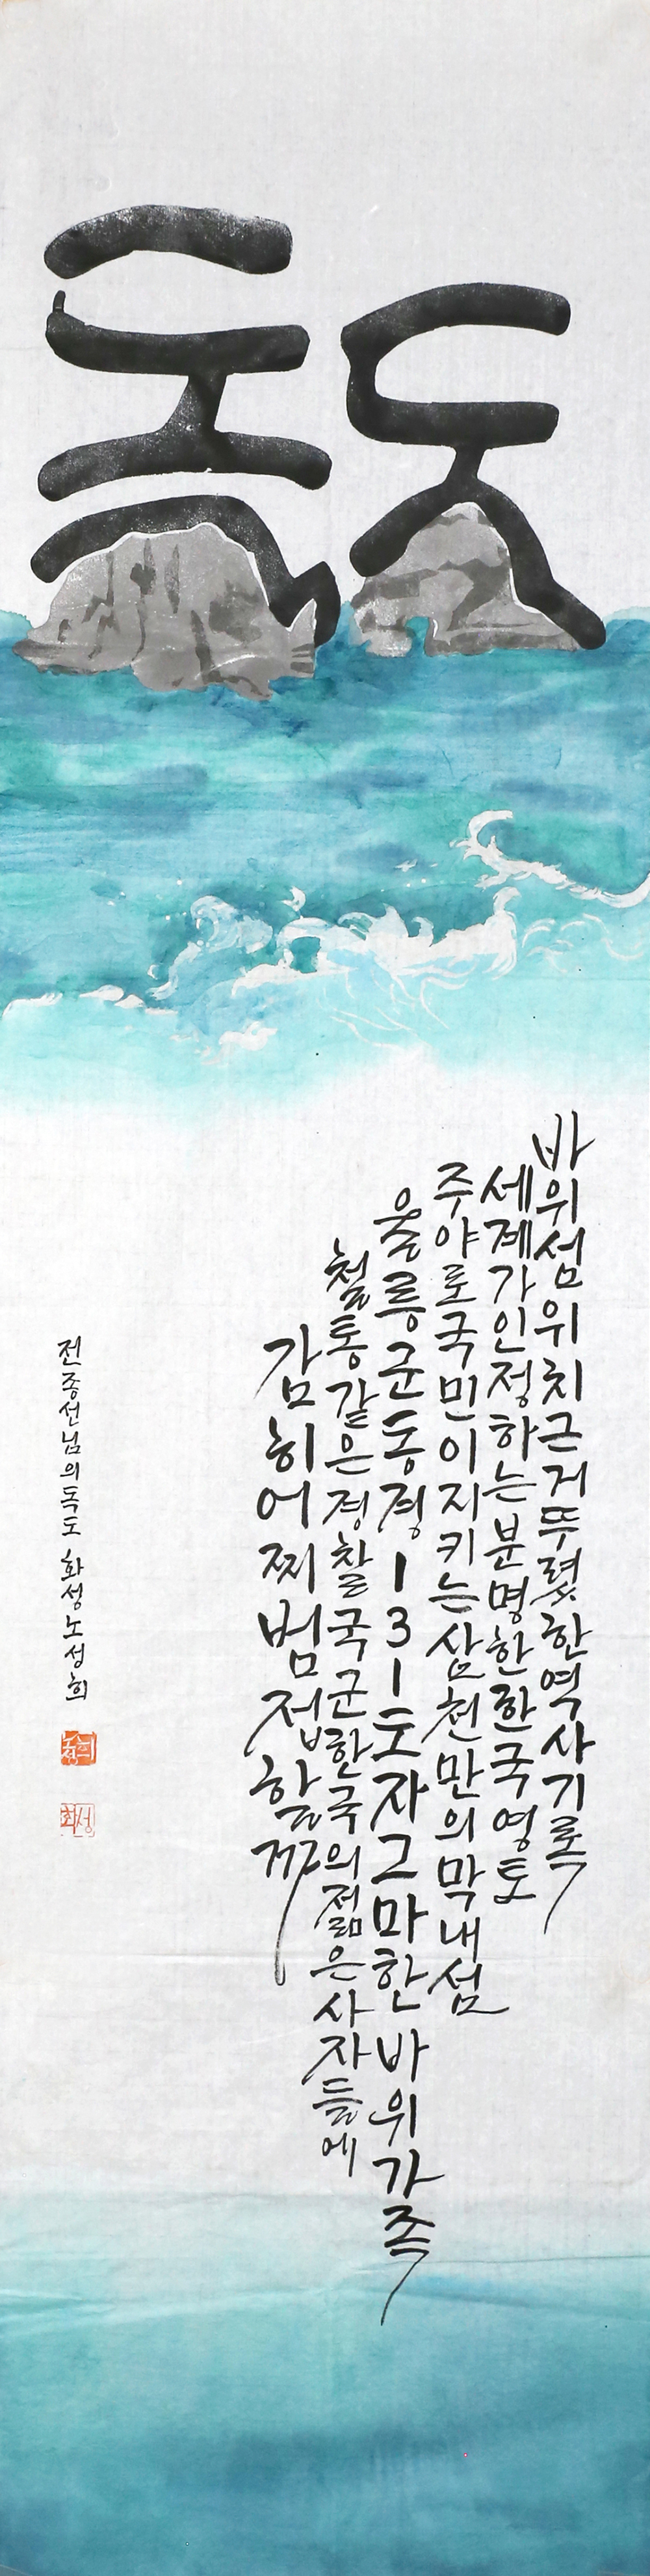 독도
바위섬위치근거뚜렷한역사기록
세계가인정하는분명한한국영토
주야로국민이지키는삼천만의막내섬
울릉군동경131도자그마한바위가족
철통같은경찰국군한국의젊은사자들에
감히어찌범접할까
전종선님의독도 화성노성희
노성희
화성